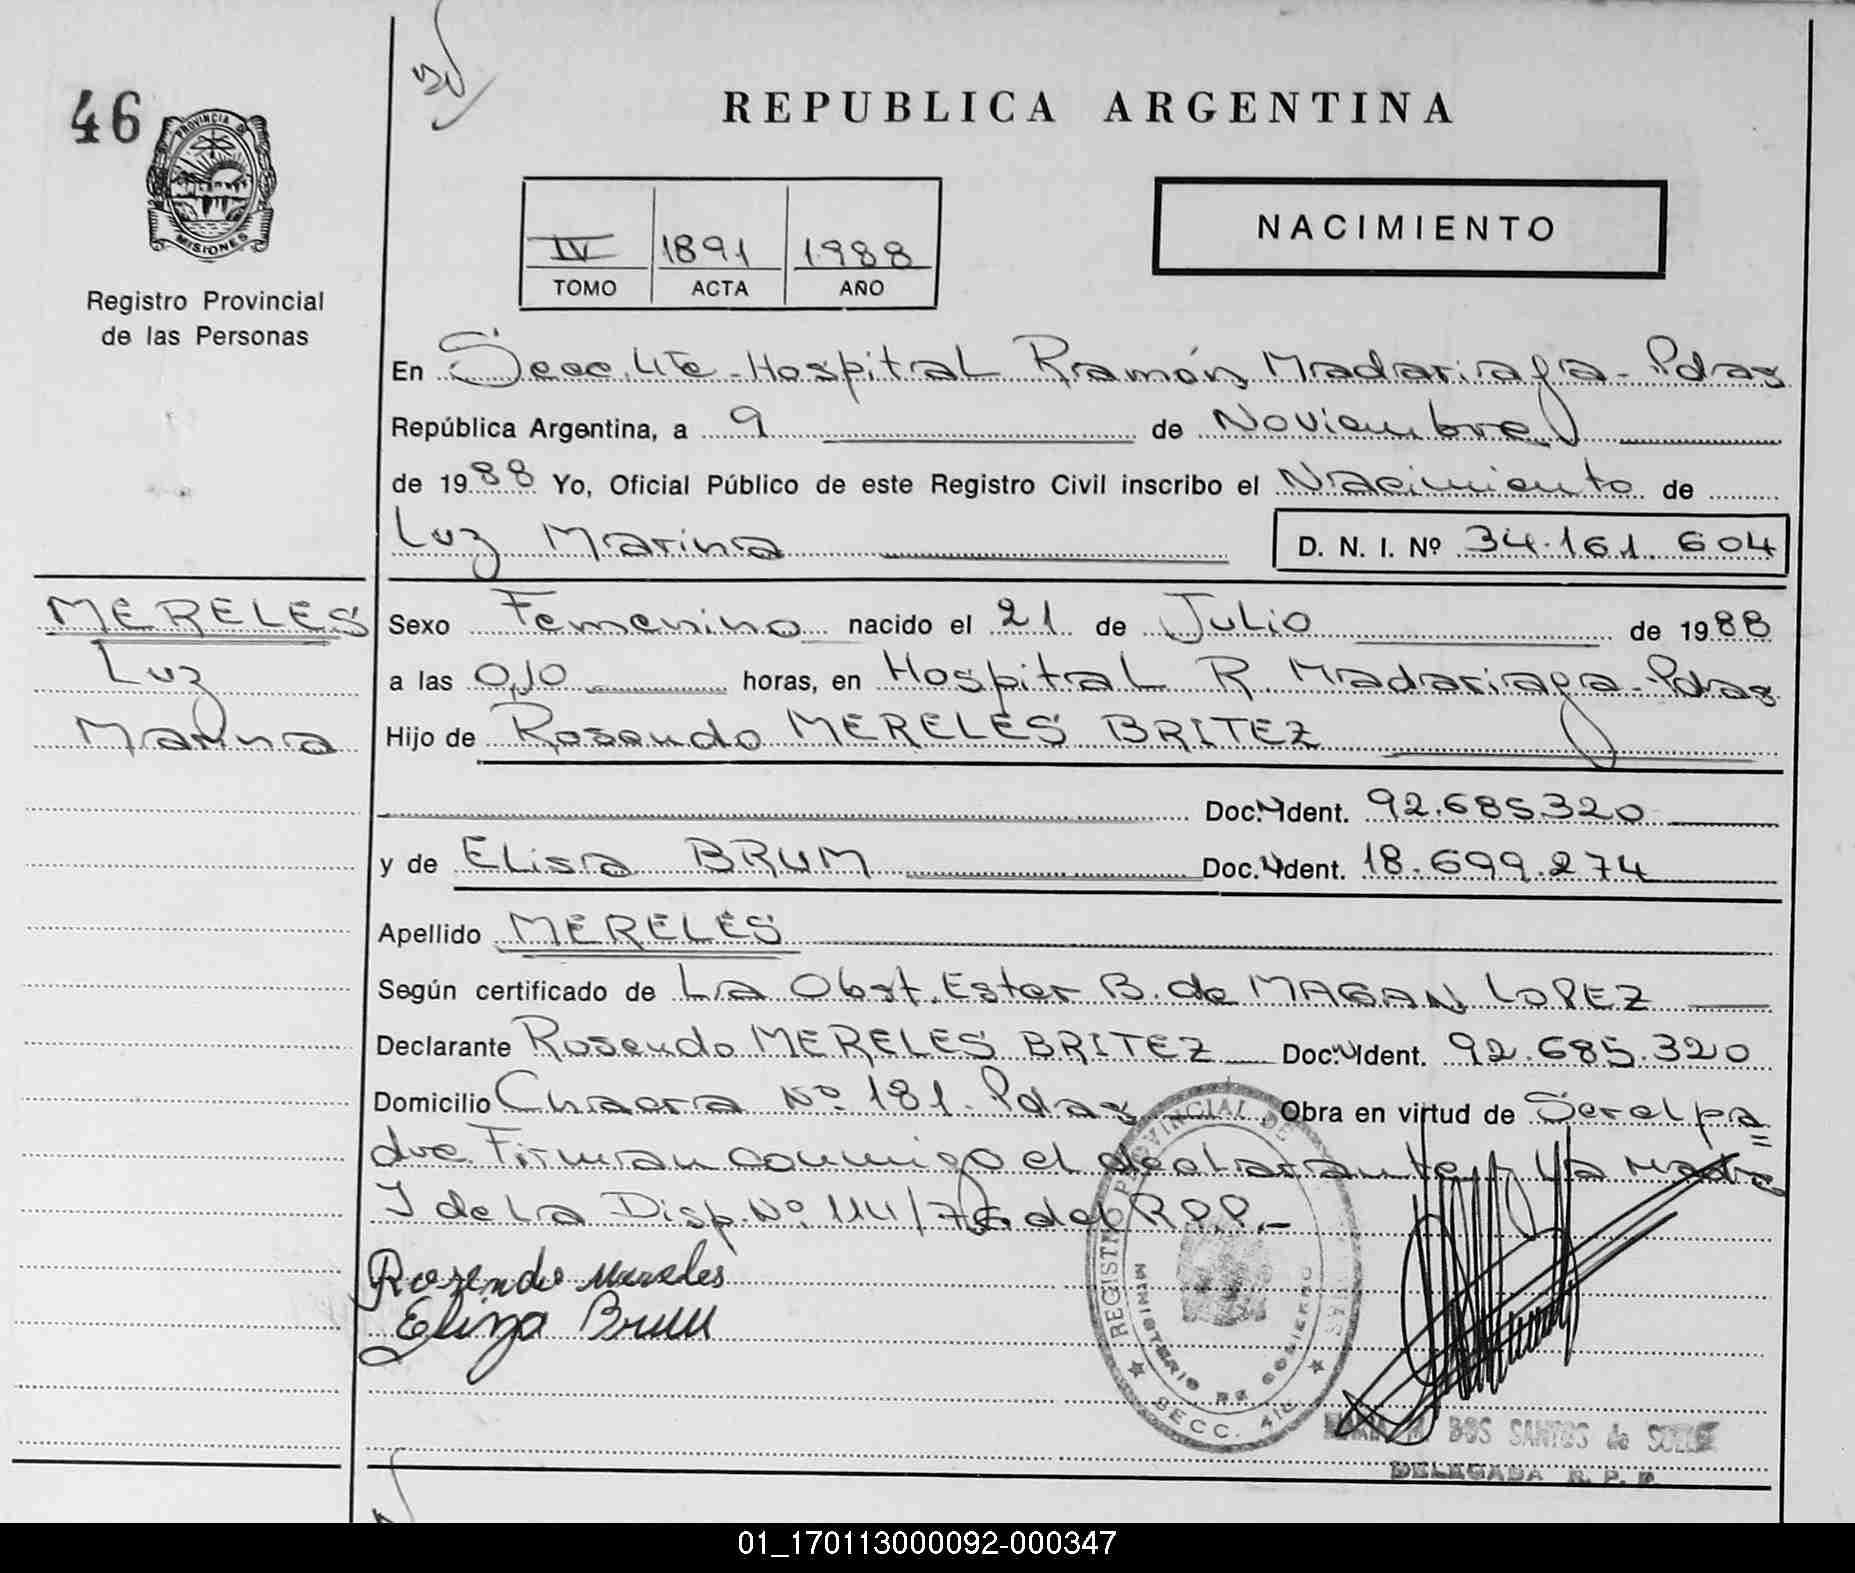 46
REPUBLICA ARGENTINA
PROVINCIA DE
MISIONES
Registro Provincial
de las Personas
IV 1891 1988
TOMO ACTA AÑO
NACIMIENTO
En Secc. 4te - Hospital Ramón Madariaga - Pdas
República Argentina, a 9 de Noviembre
de 1988 Yo, Oficial Público de este Registro Civil inscribo el Nacimiento de
Luz Marina D. N. I. Nº 34.161.604
MERELES
Luz
Marina
Sexo Femenino nacido el 21 de Julio de 1988
a las 0,10 horas, en Hospital R. Madariaga - Pdas
Hijo de Rosendo MERELES BRITEZ
Doc. Ident. 92.685.320
y de Elisa BRUM Doc. Ident. 18.699.274
Apellido MERELES
Según certificado de La Obst. Ester B. de MAGAN LOPEZ
Declarante Rosendo MERELES BRITEZ Doc. Ident. 92.685.320
Domicilio Chacra Nº 181. Pdas Obra en virtud de Ser el pa=
dre. Firman conmigo el declarante y la madre
J de la Disp. Nº 114/76 del R.P.P.-
Rozendo Mereles
Eliza Brum
REGISTRO PROVINCIAL DE LAS PERSONAS
MINISTERIO DE GOBIERNO
SECC. 4ta
DOS SANTOS de
DELEGADA R. P. P.
01_170113000092-000347